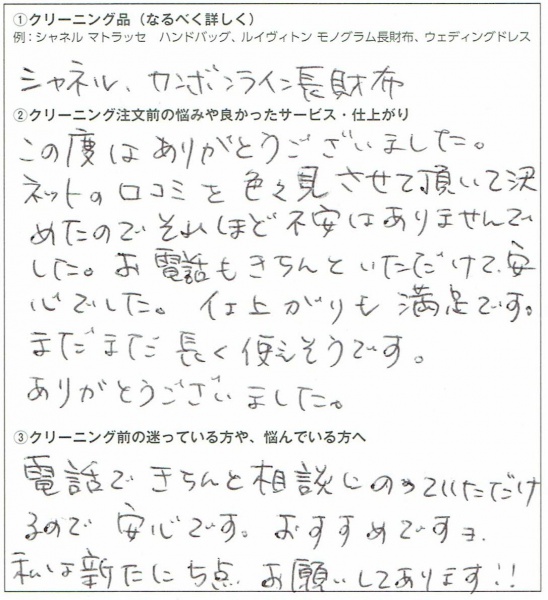 ①クリーニング品（なるべく詳しく）
例：シャネル マトラッセ　ハンドバッグ、ルイヴィトン モノグラム長財布、ウェディングドレス
シャネル、カンボンライン長財布
②クリーニング注文前の悩みや良かったサービス・仕上がり
この度はありがとうございました。
ネットの口コミを色々見させて頂いて決
めたのでそれほど不安はありませんで
した。お電話もきちんといただけて、安
心でした。仕上がりも満足です。
まだまだ長く使えそうです。
ありがとうございました。
③クリーニング前の迷っている方や、悩んでいる方へ
電話できちんと相談にのっていただけ
るので安心です。おすすめですヨ.
私は新たにち点、お願いしてあります!!